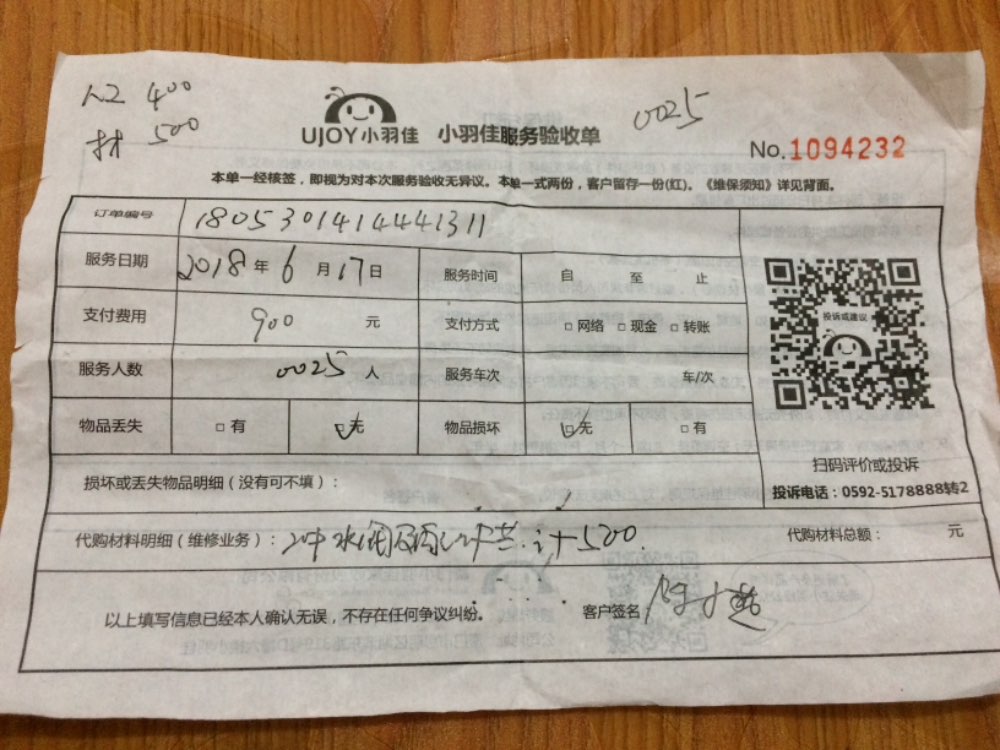 人工 400
材 500
0025
UJOY小羽佳 小羽佳服务验收单
No.1094232
本单一经核签，即视为对本次服务验收无异议。本单一式两份，客户留存一份(红)。《维保须知》详见背面。
订单编号 1805301414441311
服务日期 2018年6月17日 服务时间 自 至 止
支付费用 900 元 支付方式 □网络 □现金 □转账
服务人数 0025 人 服务车次 车/次
物品丢失 □有 ☑无 物品损坏 ☑无 □有
投诉或建议
扫码评价或投诉
投诉电话：0592-5178888转2
损坏或丢失物品明细（没有可不填）：
代购材料明细（维修业务）：冲水阀及 共计500 代购材料总额： 元
以上填写信息已经本人确认无误，不存在任何争议纠纷。 客户签名